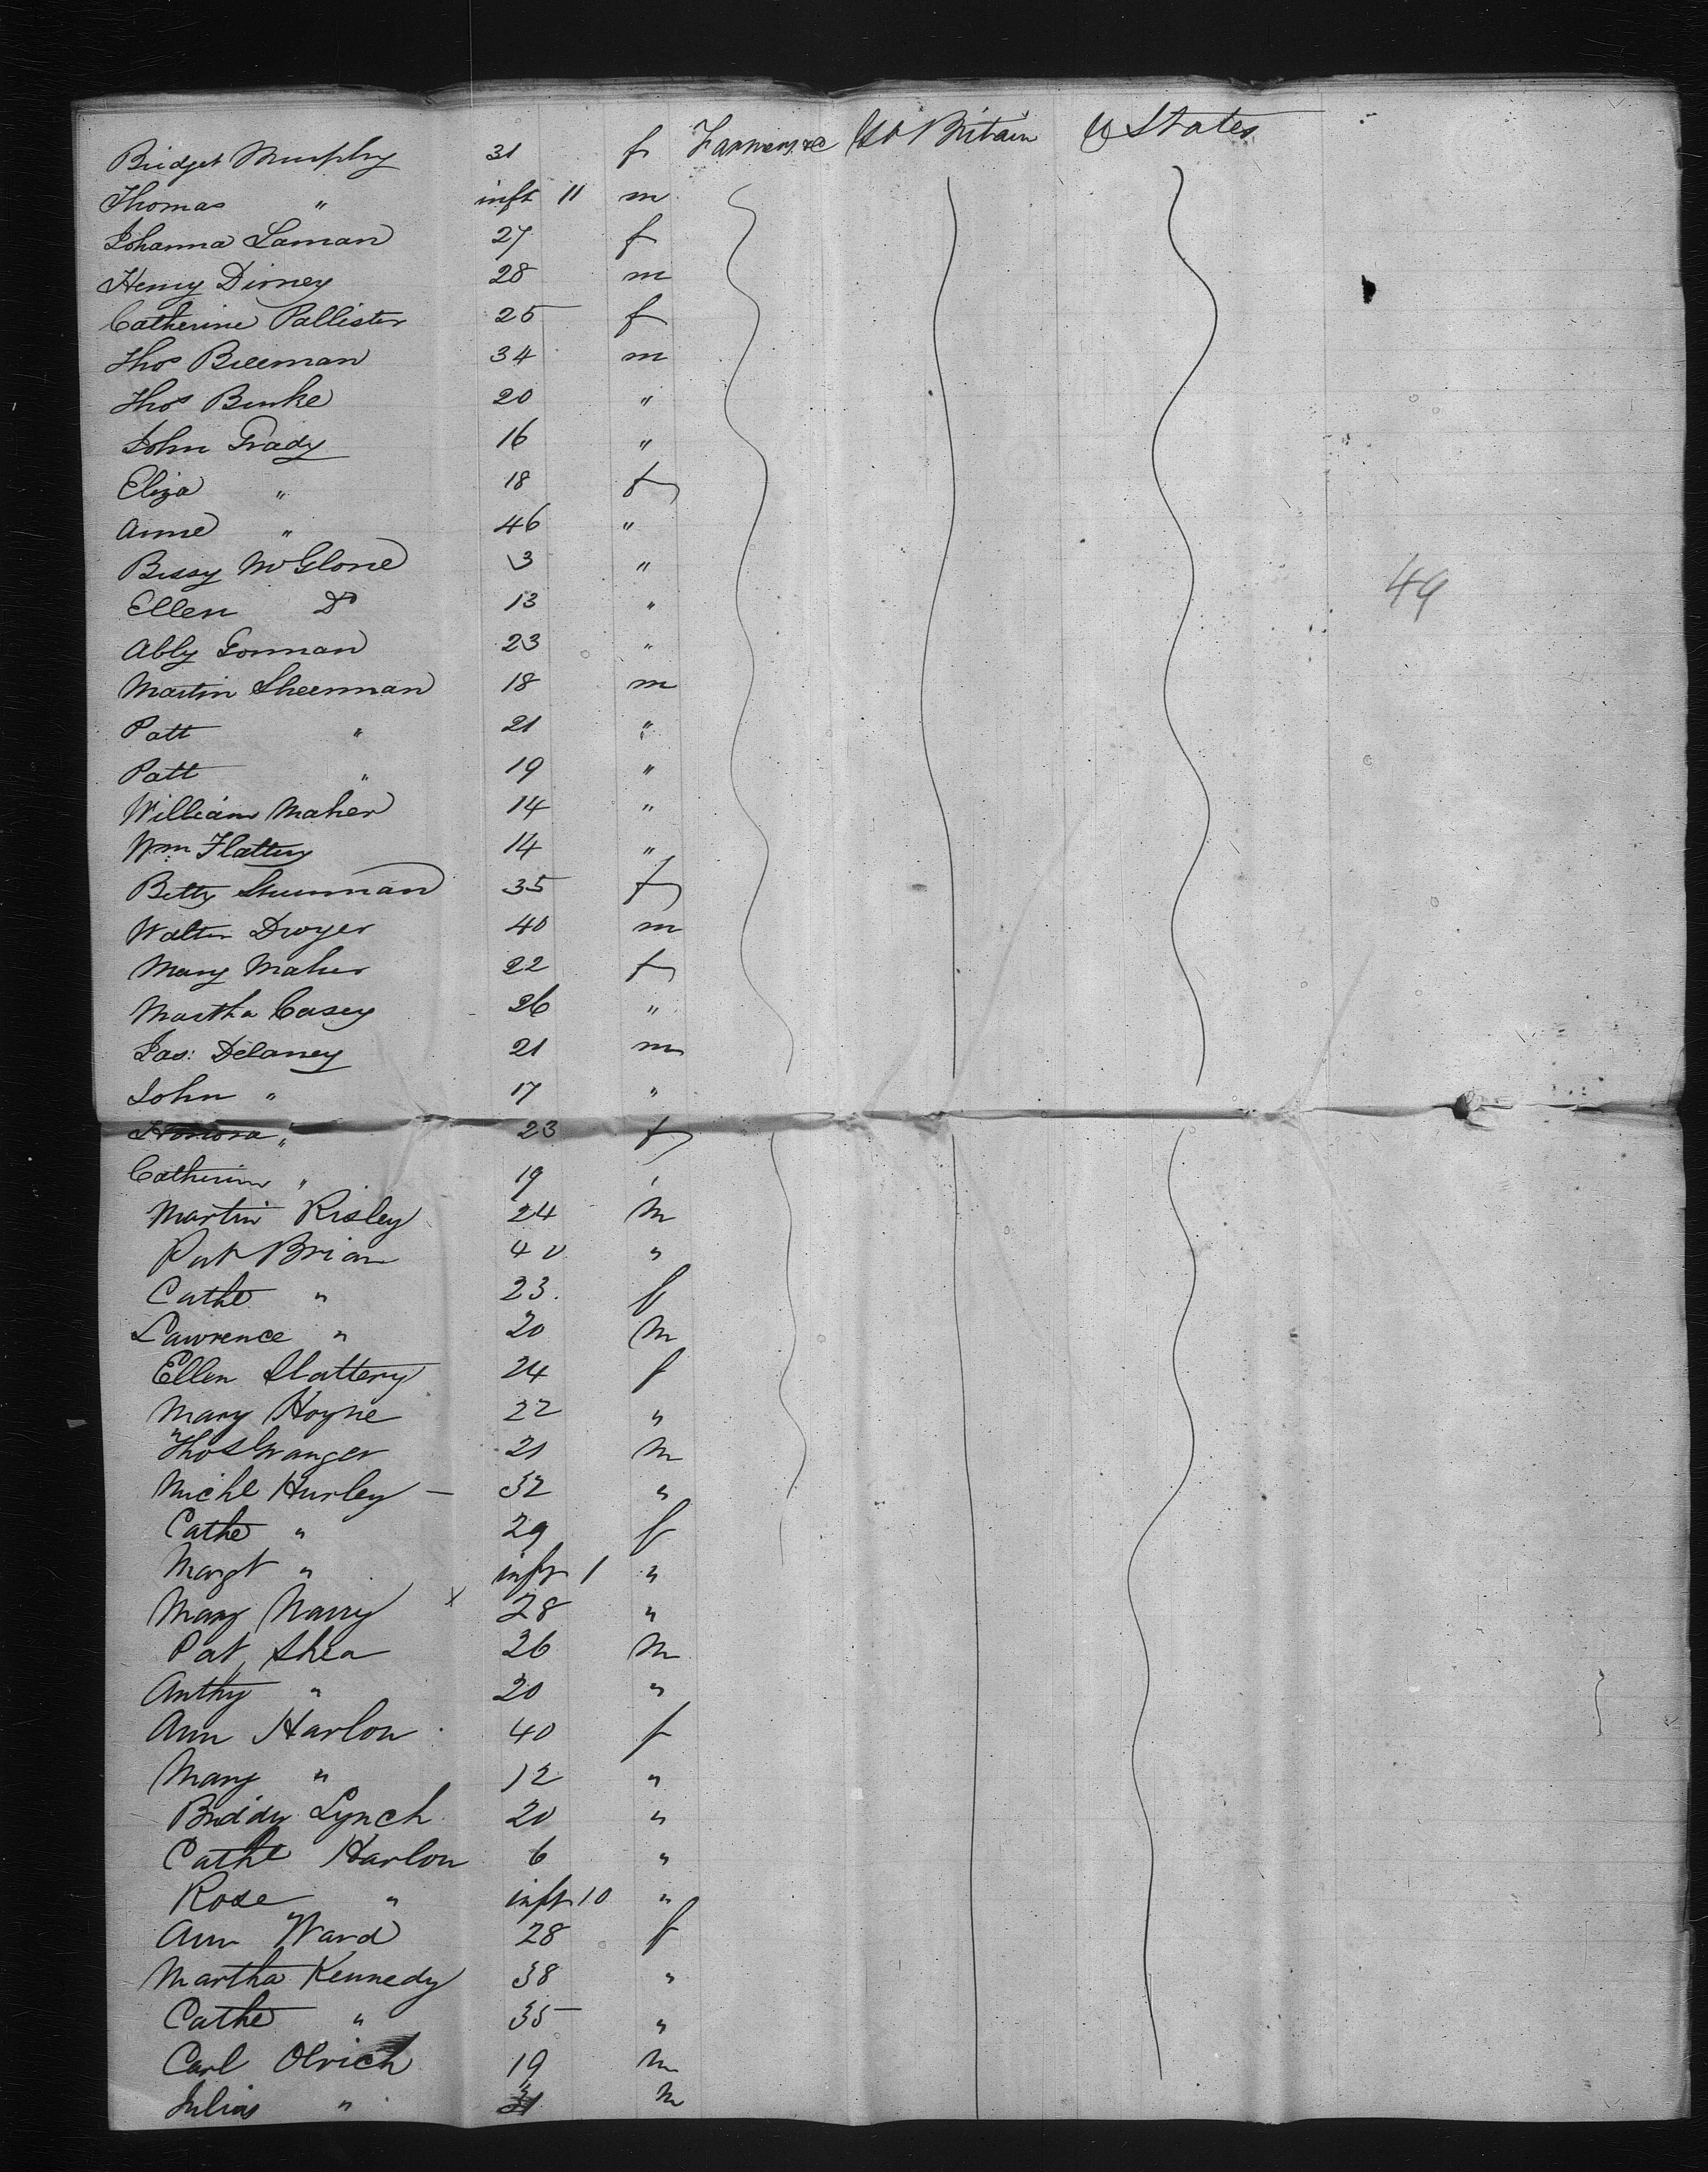 Bridget Murphy 31 f Farmers &c Gt Britain U States
Thomas " inft 11 m
Johanna Laman 27 f
Henry Dirney 28 m
Catherine Pallister 25 f
Thos Breeman 34 m
Thos Burke 20 "
John Grady 16 "
Eliza " 18 f
Anne " 46 "
Bessy McGlone 3 "
Ellen Do 13 "
Abby Gorman 23 "
Martin Sheerman 18 m
Patt " 21 "
Patt " 19 "
William Maher 14 "
Wm Flattery 14 "
Betty Sheerman 35 f
Walter Dwyer 40 m
Mary Maher 22 f
Martha Casey 26 "
Jas: Delaney 21 m
John " 17 "
Honora " 23 f
Catherine " 19 "
Martin Risley 24 m
Pat Brian 40 "
Cathe " 23 f
Lawrence " 20 m
Ellen Slattery 24 f
Mary Hoyne 22 "
Thos Granger 21 m
Michl Hurley — 32 "
Cathe " 29 f
Margt " inft 1 "
Mary x 28 "
Pat Shea 26 m
Anthy " 20 "
Ann Harlon 40 f
Mary " 12 "
Biddy Lynch 20 "
Cathe Harlon 6 "
Rose " inft 10 "
Ann Ward 28 f
Martha Kennedy 38 "
Cathe " 35 "
Carl Olrich 19 m
Julius " m
49